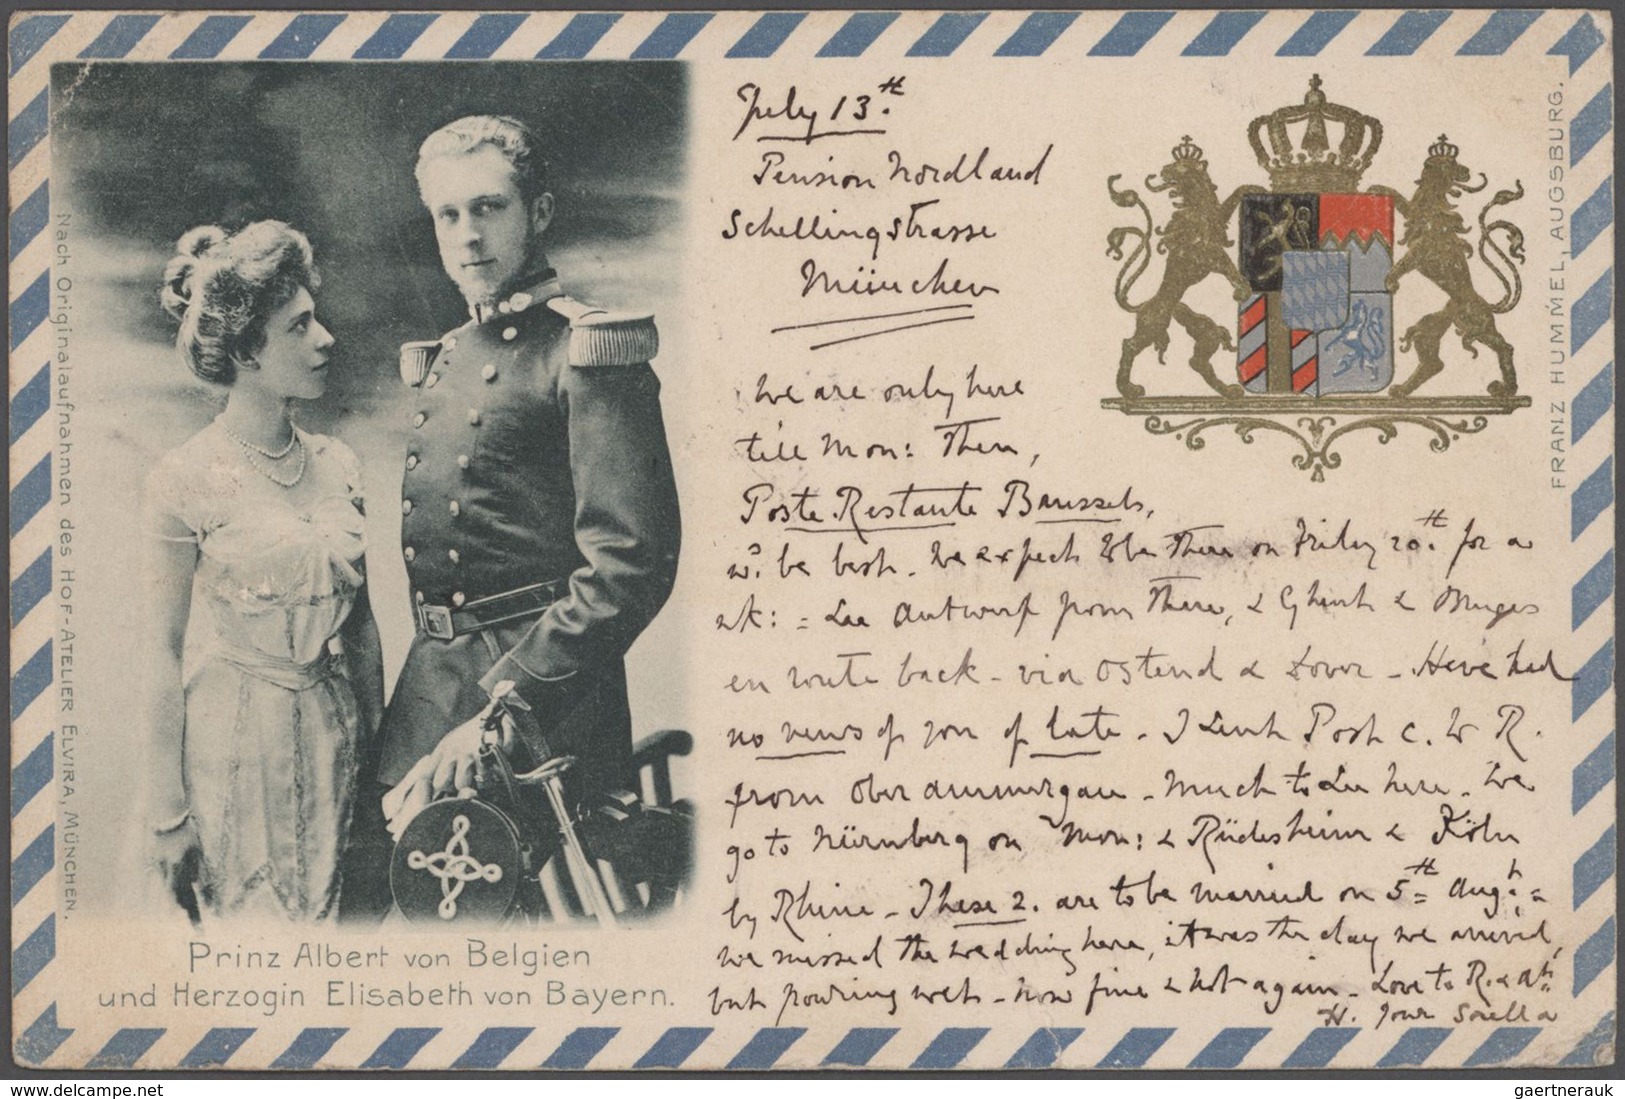 July 13.th
Pension Nordland
Schellingstrasse
München
We are only here
till Mon: Then,
Poste Restante Brussels,
wd. be best. We expect to be there on Friday 20.th for a
wk: = See Antwerp from there, & Ghent & Bruges
en route back - via Ostend & Dover - Have had
no news of you of late. I sent Post C. to R.
from Oberammergau - Much to see here. We
go to Nürnberg on Mon: & Rüdesheim & Köln
by Rhine - These 2. are to be married on 5th Augt. =
we missed the wedding here, it was the day we arrived,
but pouring wet - now fine & hot again - Love to R. &
H. Your Sorella
Prinz Albert von Belgien
und Herzogin Elisabeth von Bayern.
Nach Originalaufnahmen des Hof-Atelier Elvira, München.
FRANZ HUMMEL, AUGSBURG.
www.delcampe.net
gaertnerauk